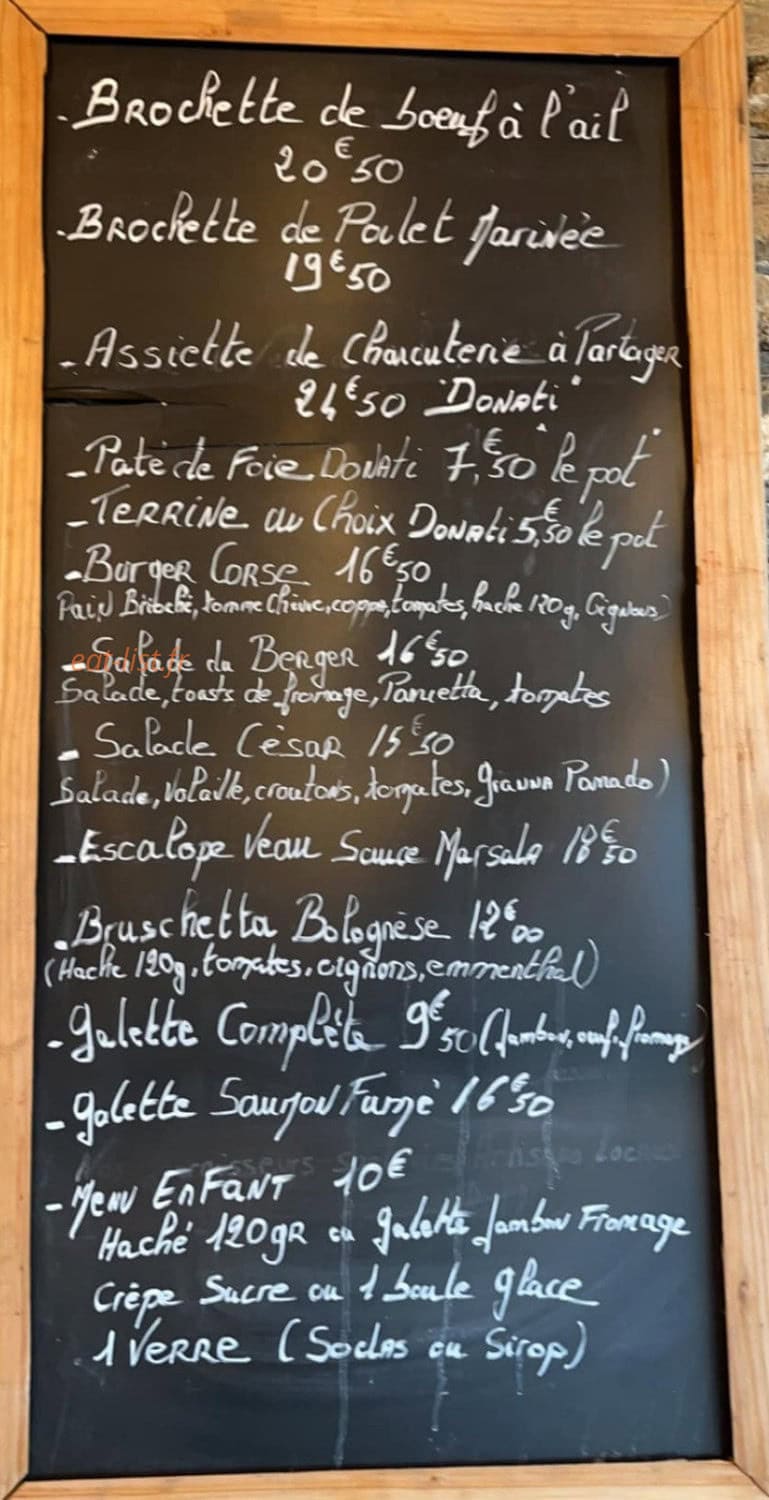 . Brochette de boeuf à l'ail
20€50
. Brochette de Poulet Marinée
19€50
- Assiette de Charcuterie à Partager
24€50 "Donati"
- Paté de Foie Donati 7,€50 le pot
- Terrine au Choix Donati 5,€50 le pot
- Burger Corse 16€50
Pain Brioché, tomme Chèvre, coppa, tomates, haché 120g, Oignons)
- Salade du Berger 16€50
eatdist.fr
Salade, toasts de fromage, Pancetta, tomates
- Salade César 15€50
Salade, Volaille, croutons, tomates, grauna Panado)
- Escalope Veau Sauce Marsala 18€50
. Bruschetta Bolognèse 12€00
(Haché 120g, tomates, oignons, emmenthal)
- galette Complète 9€50 (Jambon, oeuf, fromage)
- galette Saumon Fumé 16€50
- Menu Enfant 10€
Haché 120gR ou galette Jambon Fromage
Crèpe Sucre ou 1 boule glace
1 Verre (Sodas ou Sirop)